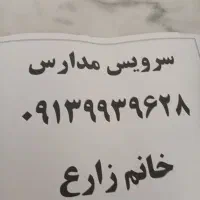 سرویس مدارس
۰۹۱۳۹۹۳۹۶۲۸
خانم زارع